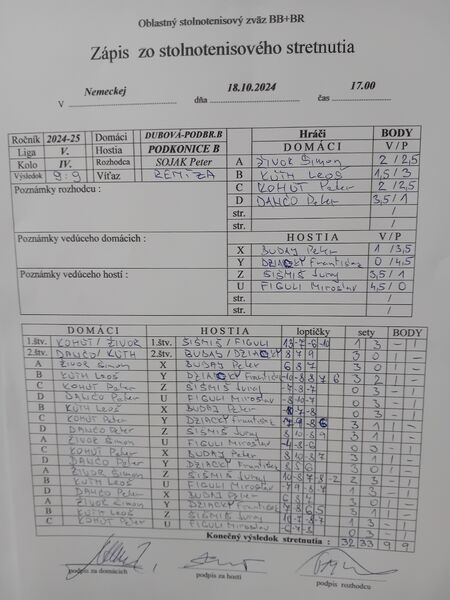 Oblastný stolnotenisový zväz BB+BR
Zápis zo stolnotenisového stretnutia
V Nemeckej dňa 18.10.2024 čas 17.00
Ročník 2024-25 Domáci DUBOVÁ-PODBR.B
Liga V. Hostia PODKONICE B
Kolo IV. Rozhodca SOJAK Peter
Výsledok 9:9 Víťaz REMÍZA
Poznámky rozhodcu :
Poznámky vedúceho domácich :
Poznámky vedúceho hostí :
Hráči BODY
DOMÁCI V/P
A ŽIVOR Šimon 2/2,5
B KÚTH Leoš 1,5/3
C KOHÚT Peter 2/2,5
D DANČO Peter 3,5/1
str. /
str. /
HOSTIA V/P
X BUDAJ Peter 1/3,5
Y DZIACKY František 0/4,5
Z ŠIŠMIŠ Juraj 3,5/1
U FIGULI Miroslav 4,5/0
str. /
str. /
DOMÁCI HOSTIA loptičky sety BODY
1.štv. KOHÚT/ŽIVOR 1.štv. ŠIŠMIŠ/FIGULI 1 3 - 1
2.štv. DANČO/KÚTH 2.štv. BUDAJ/DZIACKY 8 7 9 3 0 1 -
A ŽIVOR Šimon X BUDAJ Peter 6 8 7 3 0 1 -
B KÚTH Leoš Y DZIACKY František 3 2 1 -
C KOHÚT Peter Z ŠIŠMIŠ Juraj 0 3 - 1
D DANČO Peter U FIGULI Miroslav 0 3 - 1
B KÚTH Leoš X BUDAJ Peter 0 3 - 1
C KOHÚT Peter Y DZIACKY František 3 1 1 -
D DANČO Peter Z ŠIŠMIŠ Juraj 3 1 1 -
A ŽIVOR Šimon U FIGULI Miroslav 0 3 - 1
C KOHÚT Peter X BUDAJ Peter
D DANČO Peter Y DZIACKY František
A ŽIVOR Šimon Z ŠIŠMIŠ Juraj
B KÚTH Leoš U FIGULI Miroslav
D DANČO Peter X BUDAJ Peter
A ŽIVOR Šimon Y DZIACKY František
B KÚTH Leoš Z ŠIŠMIŠ Juraj
C KOHÚT Peter U FIGULI Miroslav
Konečný výsledok stretnutia : 32 33 9 9
podpis za domácich podpis za hostí podpis rozhodcu